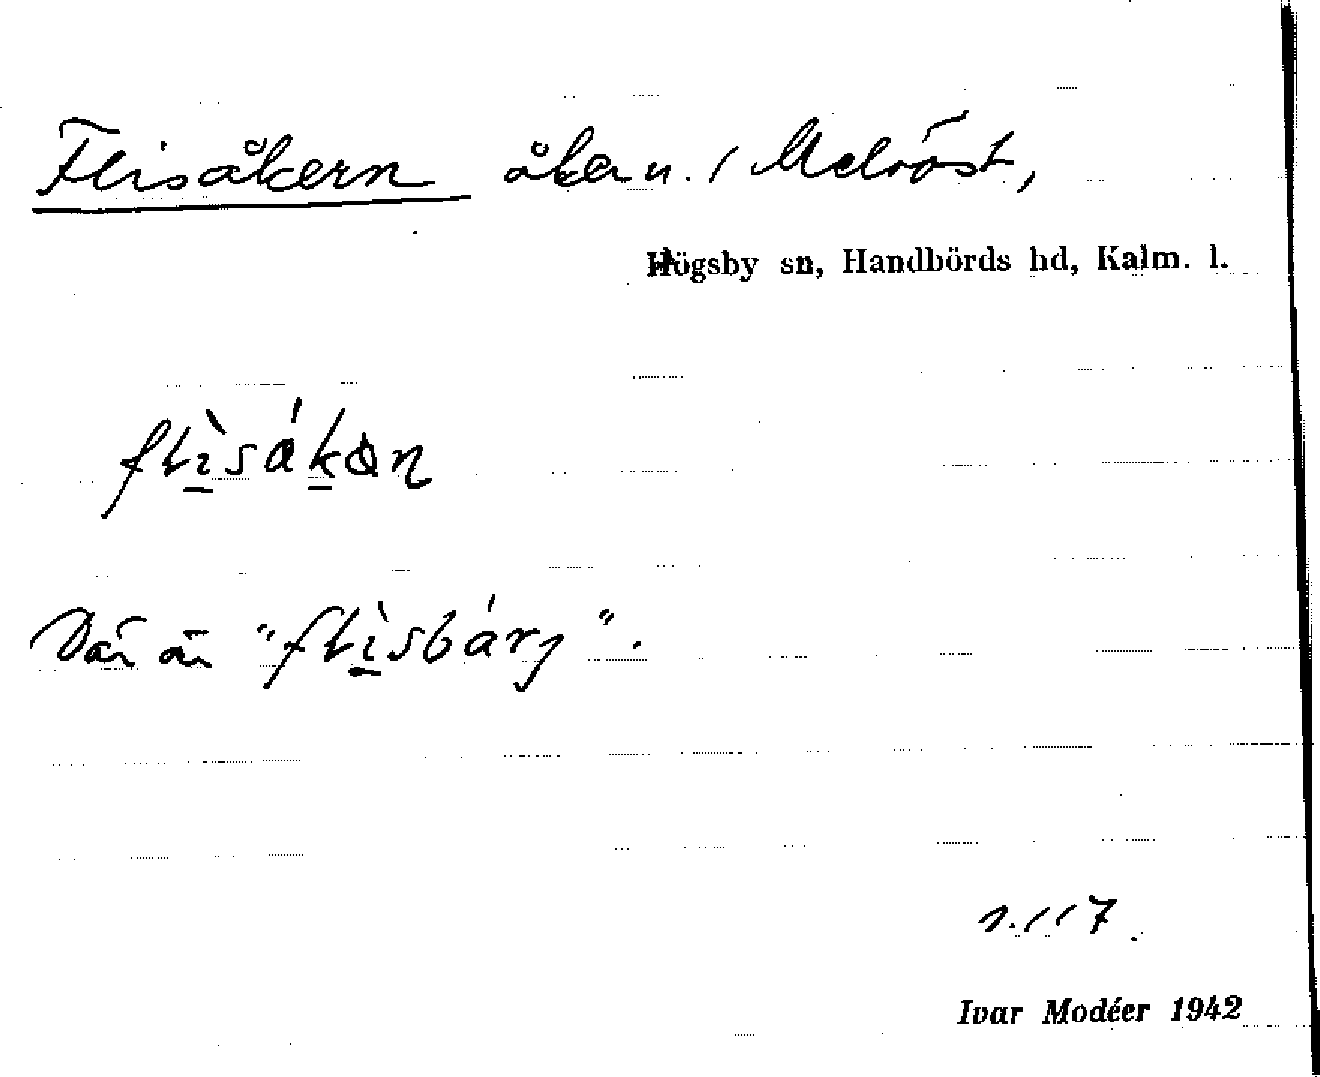 Flisåkern åker n. / Melröst,
Högsby sn, Handbörds hd, Kalm. l.
flìsákan
Där är "flìsbárj".
s. 117.
Ivar Modéer 1942